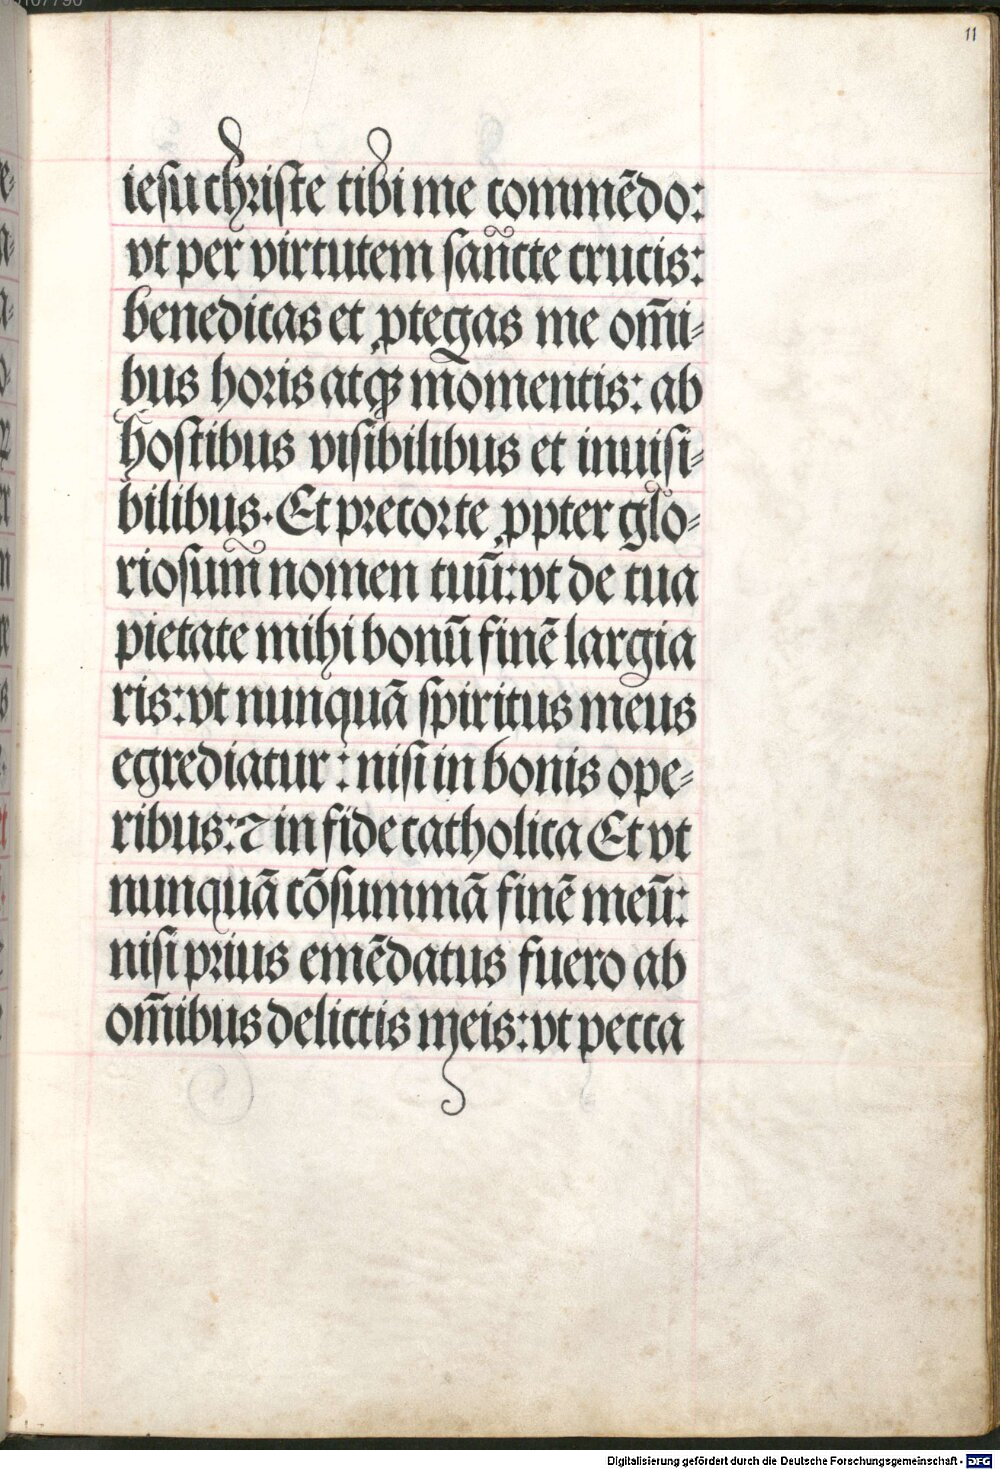 11
iesu christe tibi me commēdo:
vt per virtutem san̄cte crucis:
benedicas et ꝓtegas me om̄i⸗
bus horis atqꝫ momentis: ab
hostibus visibilibus et inuisi⸗
bilibus. Et precor te ꝓpter glo⸗
riosum nomen tuū: vt de tua
pietate mihi bonū finē largia
ris: vt nunquā spiritus meus
egrediatur: nisi in bonis ope⸗
ribus: ⁊ in fide catholica Et vt
nunquā cōsummā finē meū:
nisi prius emēdatus fuero ab
om̄ibus delictis meis: vt pecca
Digitalisierung gefördert durch die Deutsche Forschungsgemeinschaft - DFG